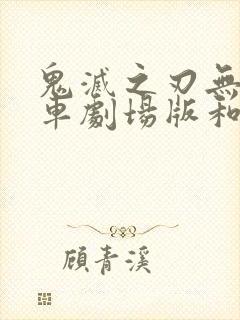 鬼滅之刃無
車劇場版和
顧青溪